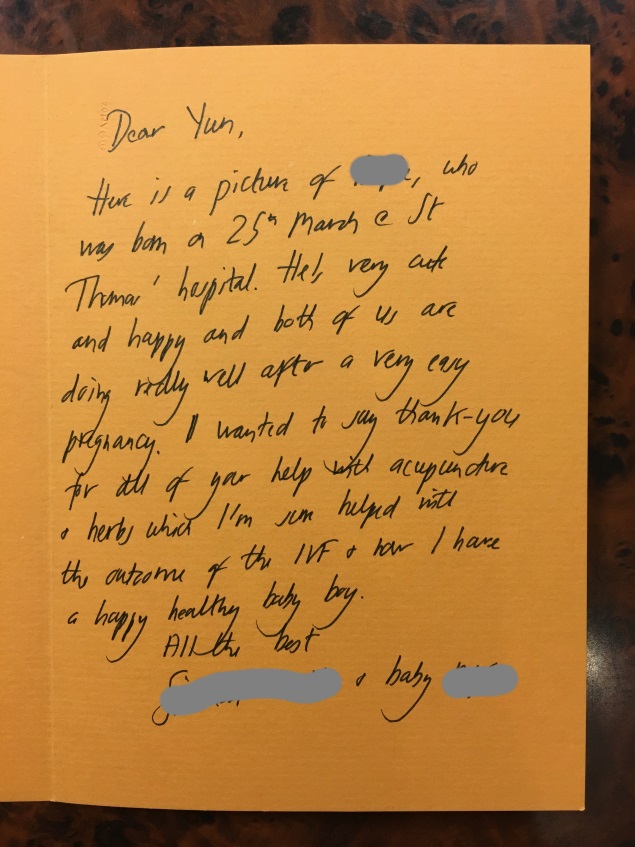 Dear Yun,
Here is a picture of , who
was born on 25th March @ St
Thomas' hospital. He's very cute
and happy and both of us are
doing really well after a very easy
pregnancy. I wanted to say thank-you
for all of your help with acupuncture
& herbs which I'm sure helped with
the outcome of the IVF & now I have
a happy healthy baby boy.
All the best
& baby